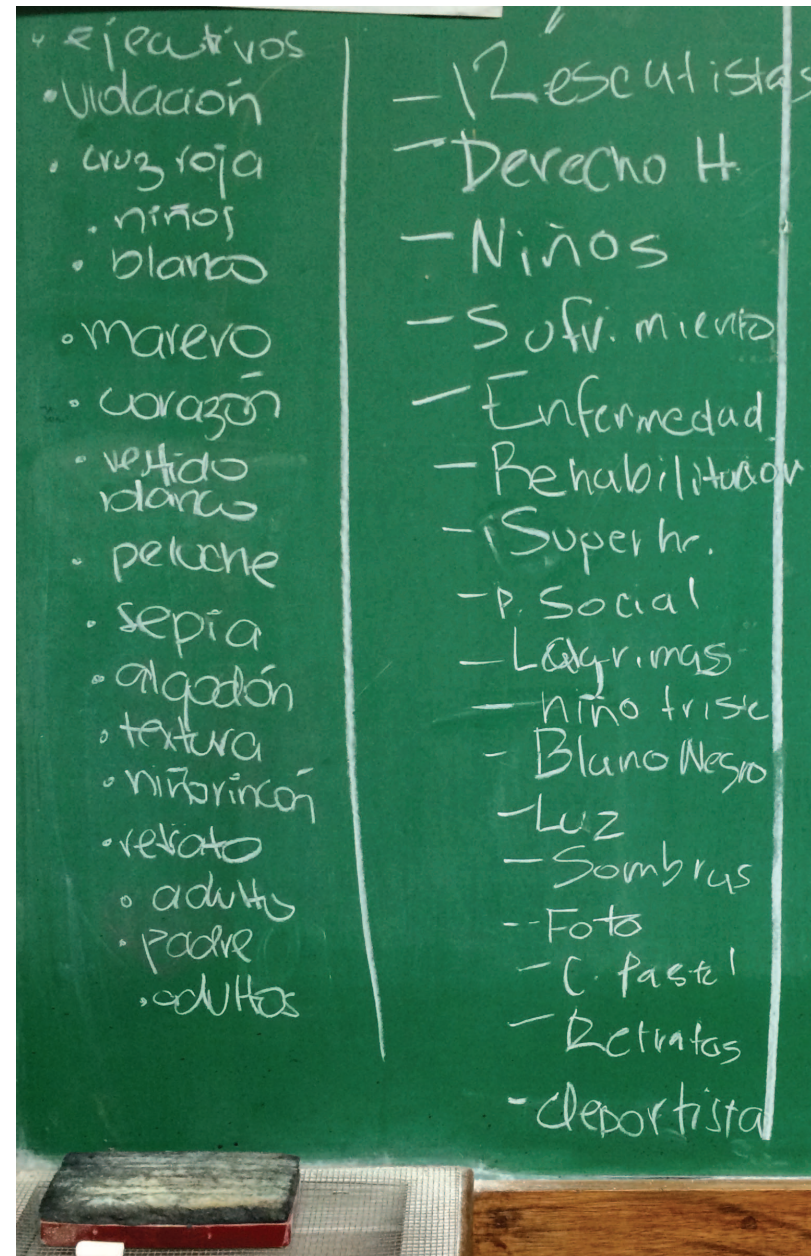 • ejecutivos
• violación
• cruz roja
• niños
• blanco
• marero
• corazón
• vestido
blanco
• peluche
• sepia
• algodón
• textura
• niñorincón
• retrato
• adulto
• padre
• adultos
— Rescutistas
— Derecho H.
— Niños
— Sufrimiento
— Enfermedad
— Rehabilitación
— Superhr.
— P. Social
— Lagrimas
— niño triste
- Blanco Negro
— Luz
— Sombras
-- Foto
— C. Pastel
— Retratos
- deportista